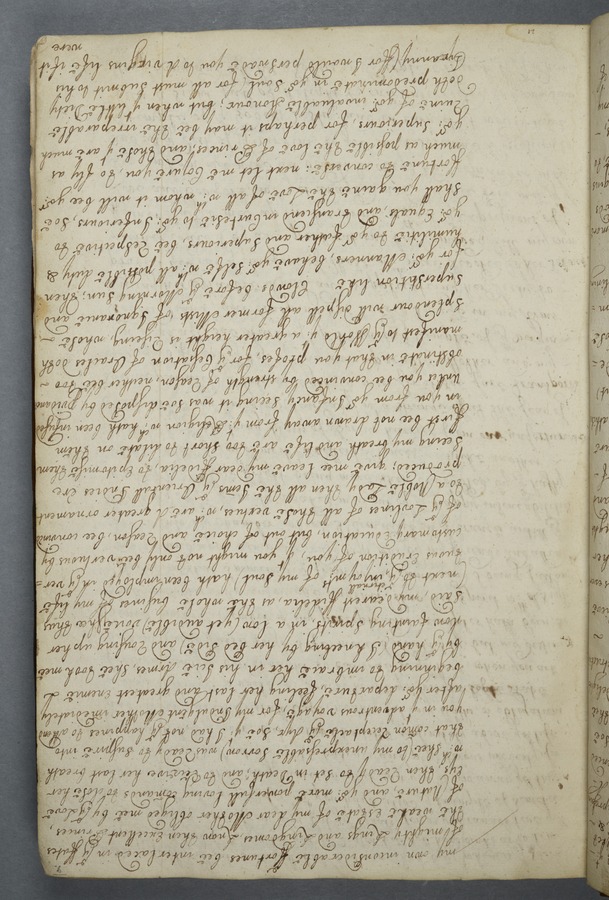 my own inconsiderable ffortunes bee interlaced in ye ffates
of mighty Kings and Kingdomes, know then Excellent Princes,
the weake estate of my dear Mother obliged mee by ye Laws
of Nature and yor more powerfull loving comands to close her
eys then Ready to set in Death, and to Receive her last breath
wch shee to my unexpressable sorrow was Ready to suspire into
that comon Receptacle ye Ayr, soe yt I had not ye happines to attend
you in yt adventurous voyage, for my Indulgent Mother imediately
after yor departure feeling her last and greatest Enemie
beginning to imbrace her in his Icie Armes, shee took mee
by ye hand (I kneeling by her bed side) and Rouzing up her
now fainting spirits, in a low (yet audible) voice shee thus
said my dearest ffidelia, as the whole busines of my life
(next to ye injoyments of my eternall soul) hath been imployd in ye ver=
tuous Erudition of you, yt you might not only bee vertuous by
customary education, but out of choice and Reason bee inamord
of ye Lovlines of all those vertues wch are A greater ornament
to a Noble Lady then all the Jems ye Orientall Indies ere
produced, give mee leave my dear ffidelia to Epitomise them
seeing my breath and life are too short to dilate on them
ffirst bee not drawn away from ye Religion wch hath been infused
in you from yor Infancy seeing it was soe disposed by providence
unles you bee convinced by strength of Reason, neither bee too
obstinate in that you profes, for ye Cessation of Oracles doth
manifest to ye World yt a greater height is Riseing whose
splendour will dispell all former Mists of Ignorance and
superstition like Clouds before ye Morning Sun, then
for yor Manners, behave yor selfe wth all possible duty &
humilitie to yor ffather and superiours, bee Respective to
yor Equals and transcend in Curtesie to yor Inferiours, soe
shall you gaine the Love of all wth whom it will bee yor
ffortune to converse: next let me Conjure you to fly as
much as possible the love of Princes, and those yt are much
yor superiours, for perhaps it may bee the irreparable
Ruine of yor invaluable Honour, but when yt little Diety
doth predominate in yor soul, for all must submit to his
Tyranny, ffor I would perswade you to A virgins life if it
were